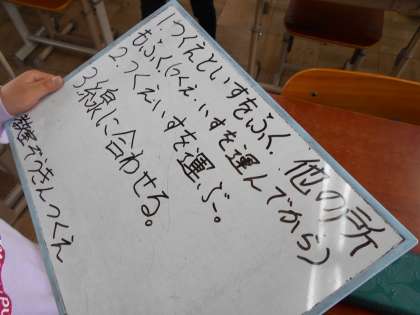 1.つくえといすをふく.他の所
もふく(つくえ.いすを運んでから)
2.つくえいすを運ぶ。
3線に合わせる。
教室ぞうきんつくえ